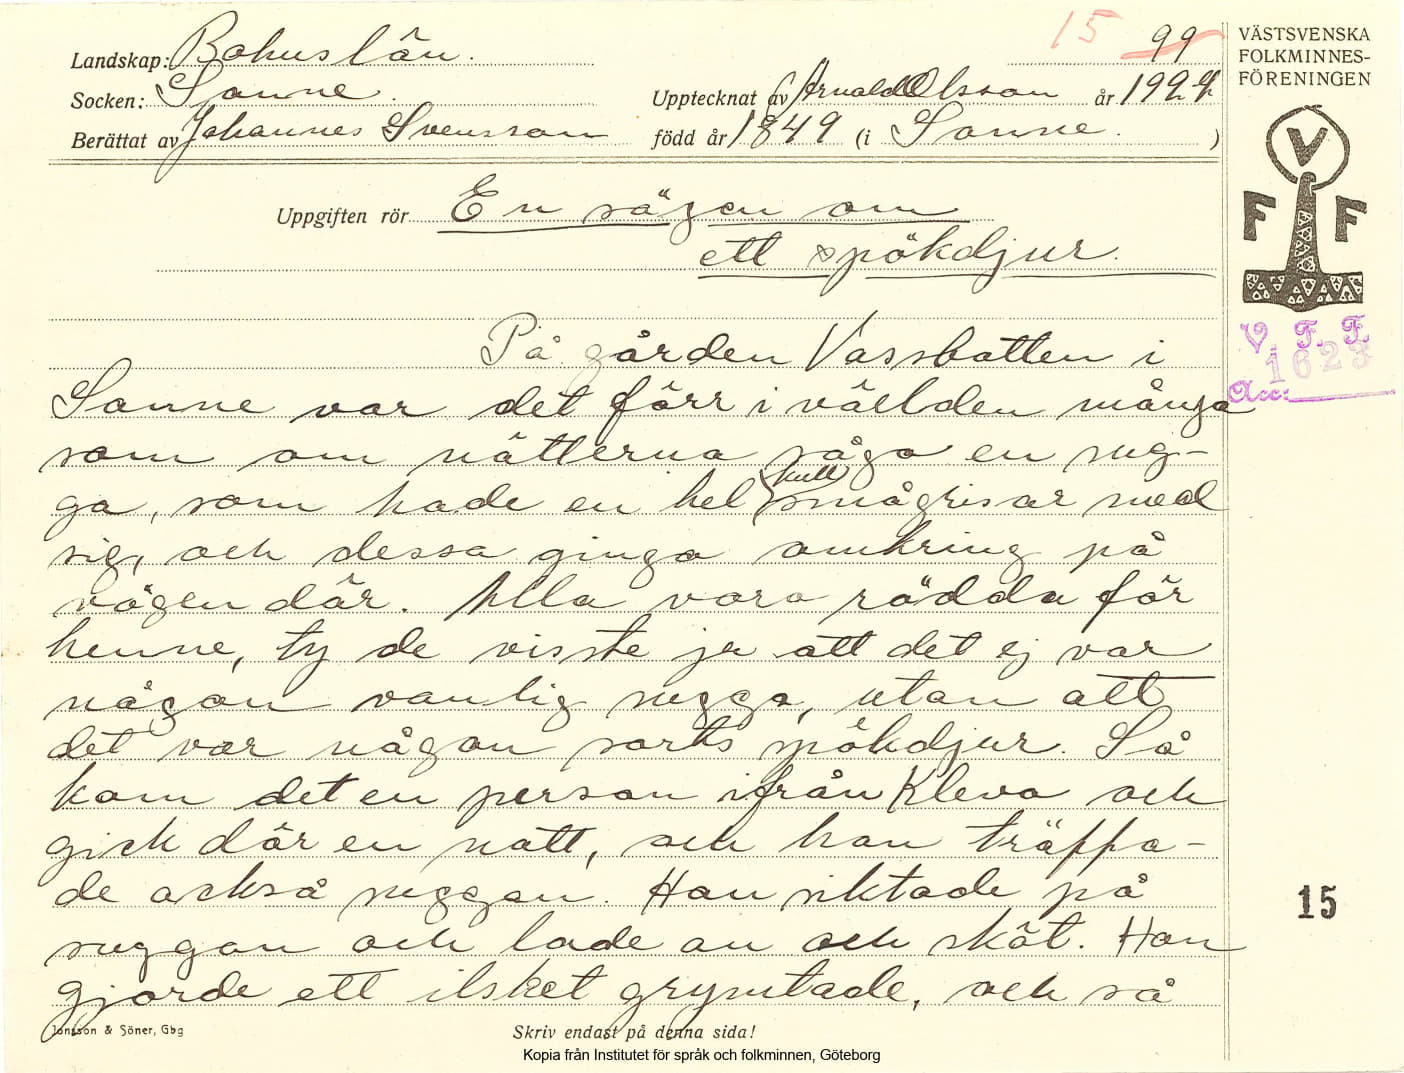 15 99
Landskap: Bohuslän.
Socken: Sanne.
Upptecknat av Arnold Olsson år 1924
Berättat av Johannes Svensson född år 1849 (i Sanne. )
Uppgiften rör En sägen om
ett spökdjur.
VÄSTSVENSKA
FOLKMINNES-
FÖRENINGEN
V
F F
V. F. F.
1623
Acc:
På gården Vassbotten i
Sanne var det förr i världen många
som om nätterna sågo en sug-
ga, som hade en hel kull smågrisar med
sig, och dessa gingo omkring på
vägen där. Alla voro rädda för
henne, ty de visste ju att det ej var
någon vanlig sugga, utan att
det var någon sorts spökdjur. Så
kom det en person ifrån Kleva och
gick där en natt, och han träffa-
de också suggan. Han siktade på
suggan och lade an och sköt. Hon
gjorde ett ilsket gryntade, och så
15
Jonsson & Söner, Gbg
Skriv endast på denna sida!
Kopia från Institutet för språk och folkminnen, Göteborg